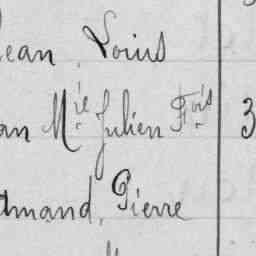 Jean, Louis
an Mie Julien Fois 3
Armand, Pierre